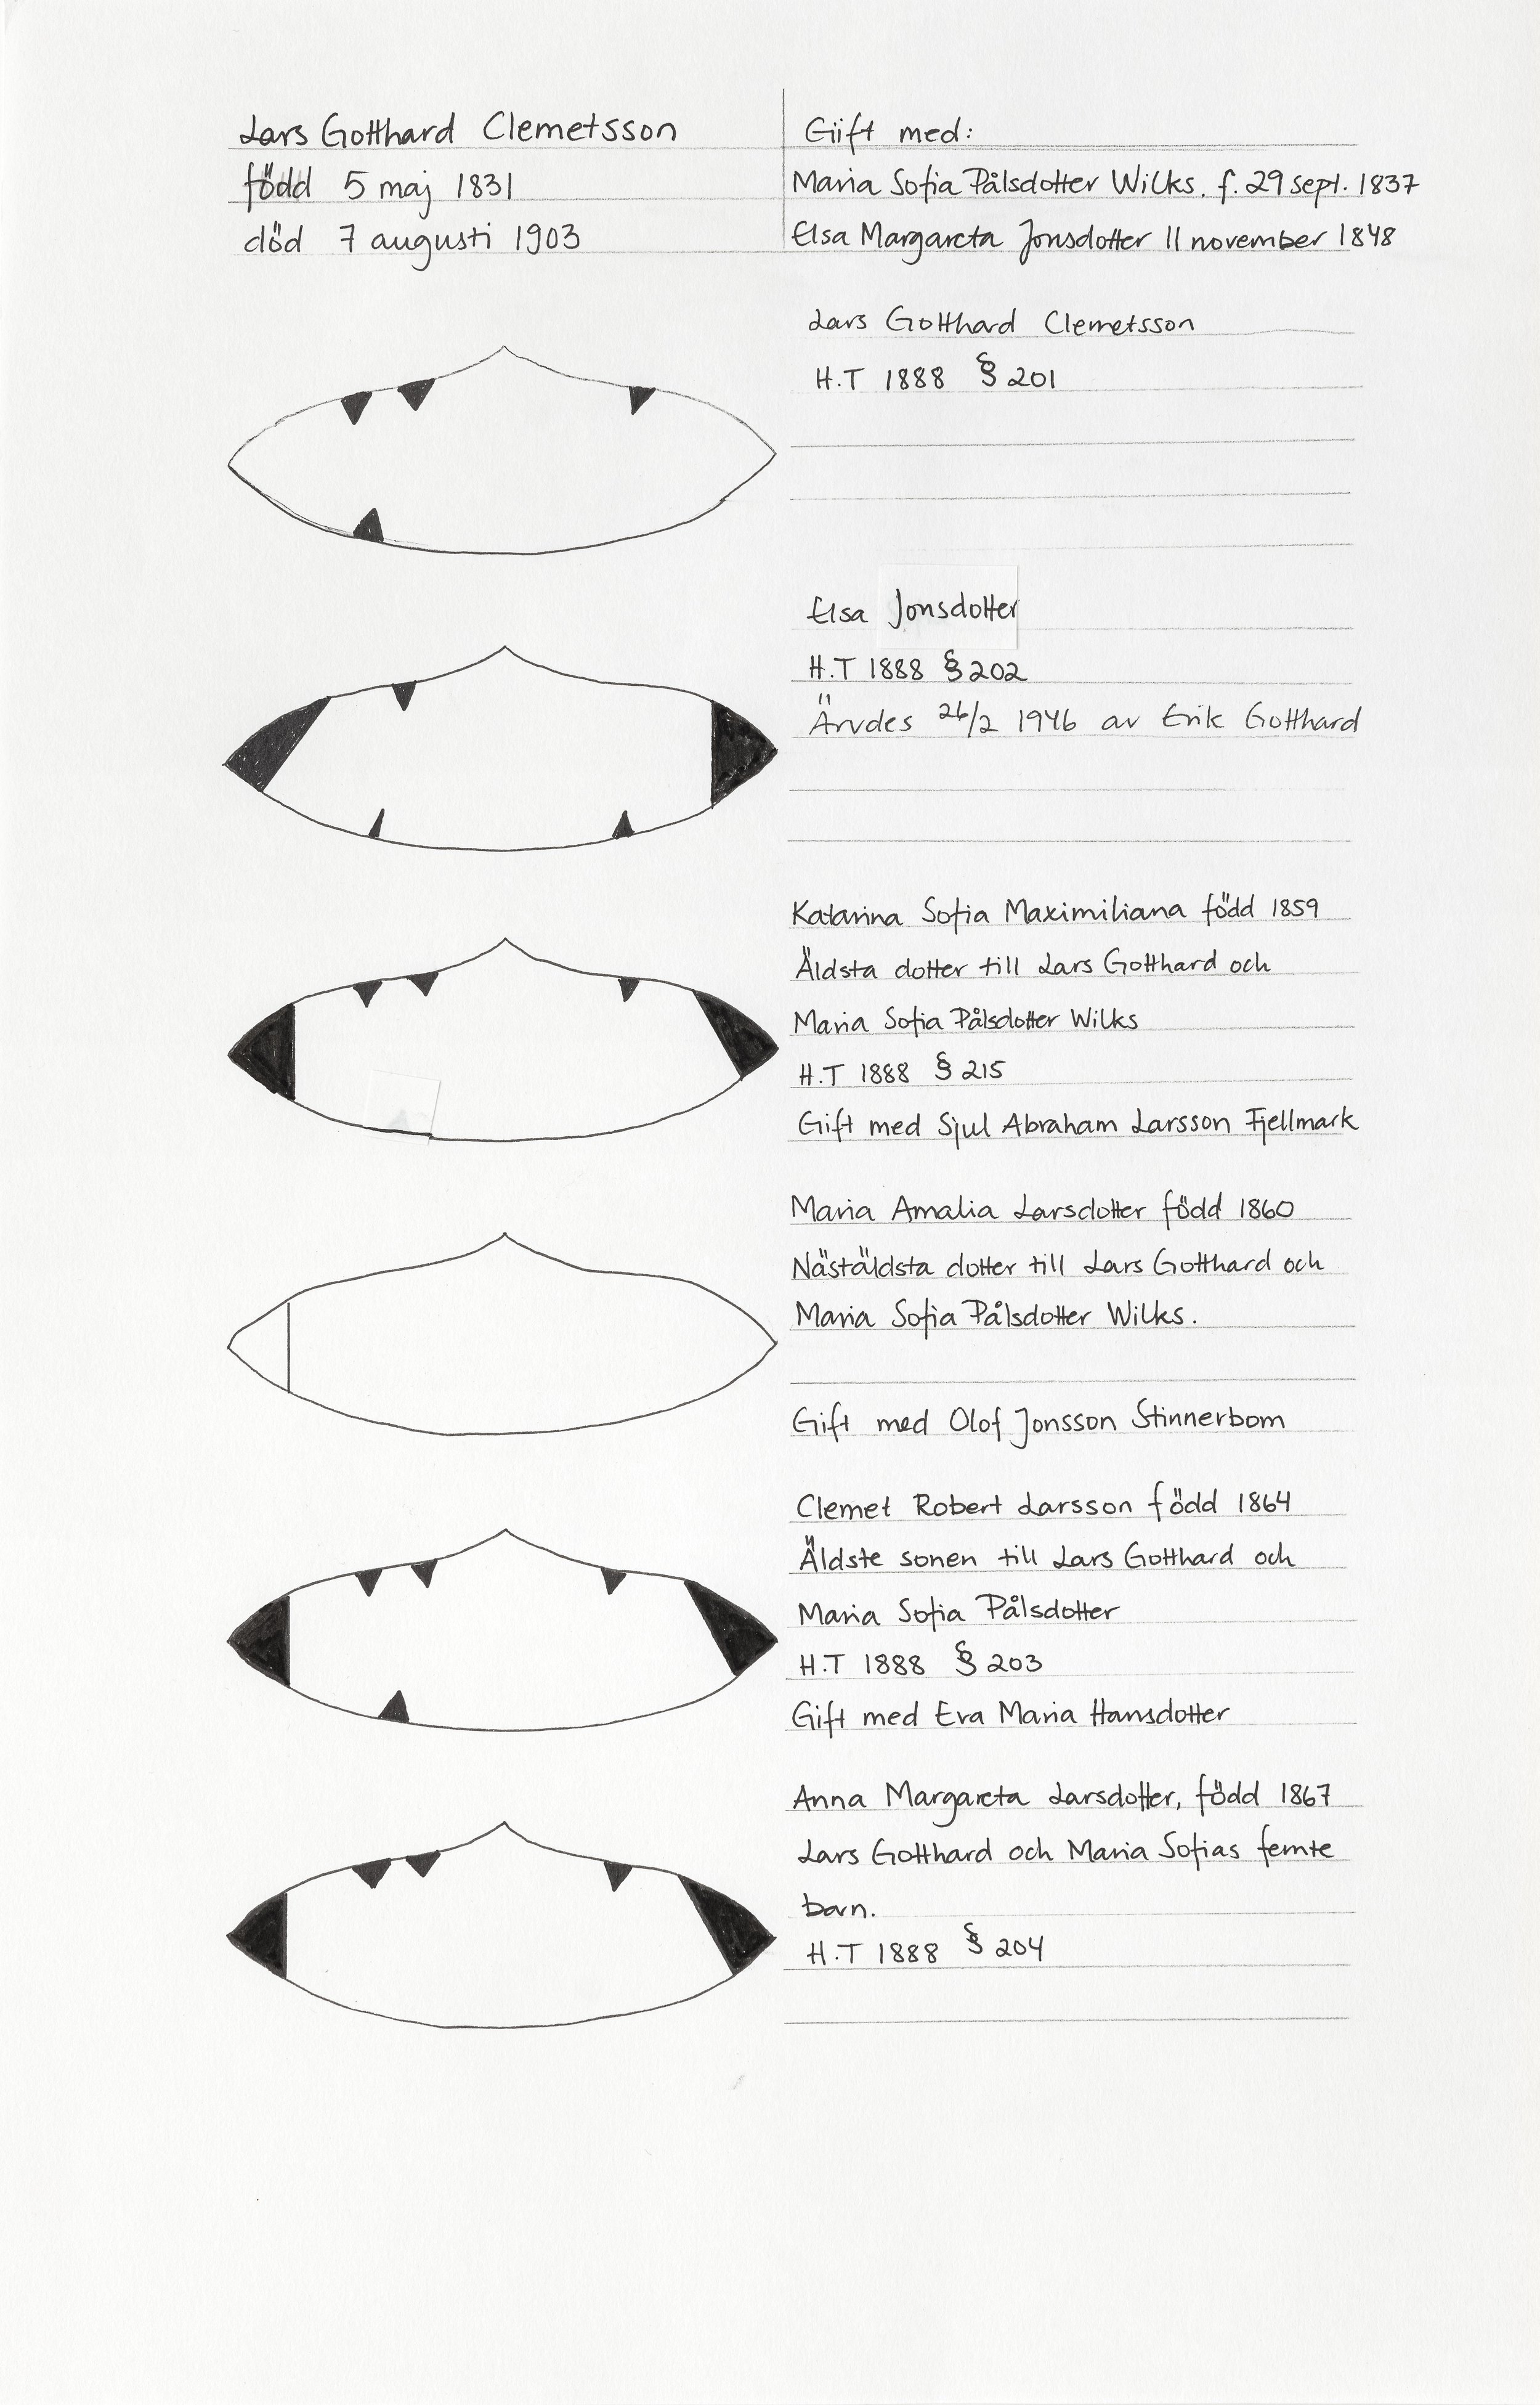 Lars Gotthard Clemetsson
född 5 maj 1831
död 7 augusti 1903
Gift med:
Maria Sofia Pålsdotter Wilks. f. 29 sept. 1837
Elsa Margareta Jonsdotter 11 november 1848
Lars Gotthard Clemetsson
H.T 1888 § 201
Elsa Jonsdotter
H.T 1888 § 202
Ärvdes 26/2 1946 av Erik Gotthard
Katarina Sofia Maximiliana född 1859
Äldsta dotter till Lars Gotthard och
Maria Sofia Pålsdotter Wilks
H.T 1888 § 215
Gift med Sjul Abraham Larsson Fjellmark
Maria Amalia Larsdotter född 1860
Nästäldsta dotter till Lars Gotthard och
Maria Sofia Pålsdotter Wilks.
Gift med Olof Jonsson Stinnerbom
Clemet Robert Larsson född 1864
Äldste sonen till Lars Gotthard och
Maria Sofia Pålsdotter
H.T 1888 § 203
Gift med Eva Maria Hansdotter
Anna Margareta Larsdotter, född 1867
Lars Gotthard och Maria Sofias femte
barn.
H.T 1888 § 204